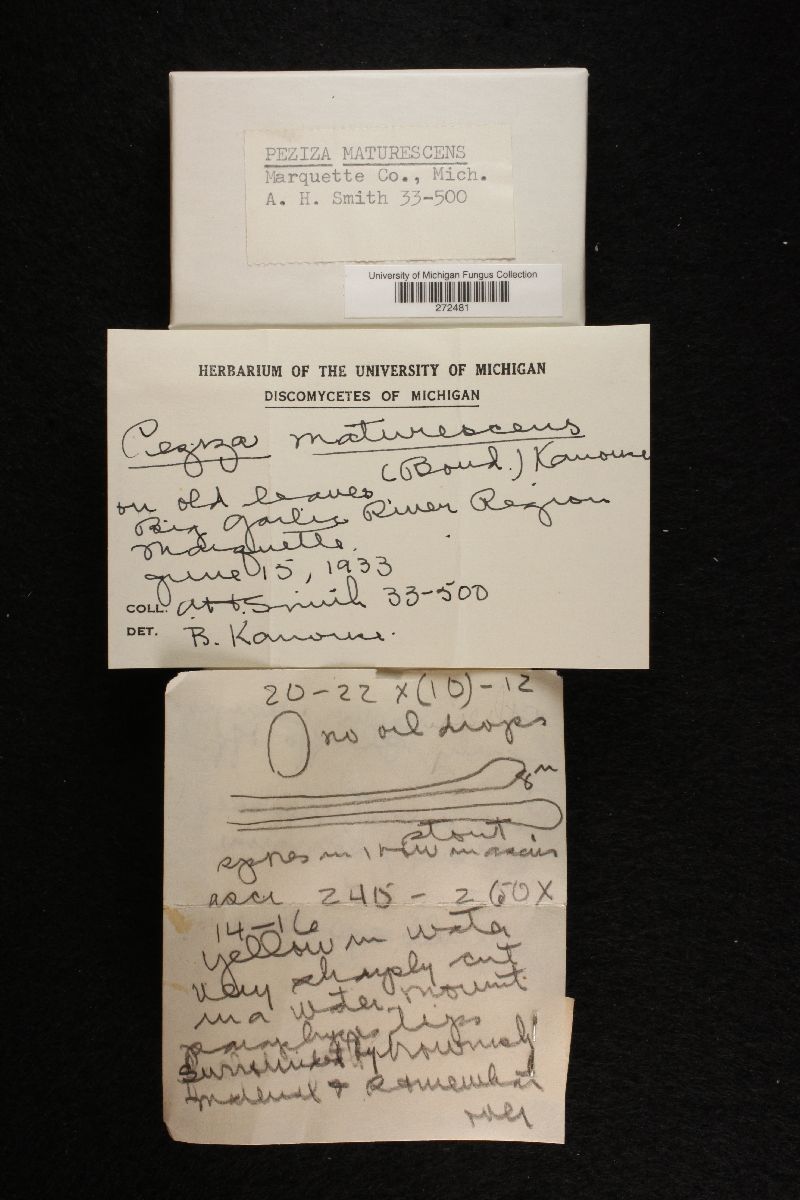 PEZIZA MATURESCENS
Marquette Co., Mich.
A. H. Smith 33-500
University of Michigan Fungus Collection
272481
HERBARIUM OF THE UNIVERSITY OF MICHIGAN
DISCOMYCETES OF MICHIGAN
Peziza maturescens
(Boud.) Kanouse
on old leaves
Big Garlic River Region
Marquette.
June 15, 1933
COLL. A.H. Smith 33-500
DET. B. Kanouse.
20-22 x (10)-12
no oil drops
8µ
stout
spores in 1 row in ascus
asci 245 - 260 X
14-16
yellow in water
very sharply cut
in a water mount
paraphyses tips
surrounded by brownish
material & somewhat